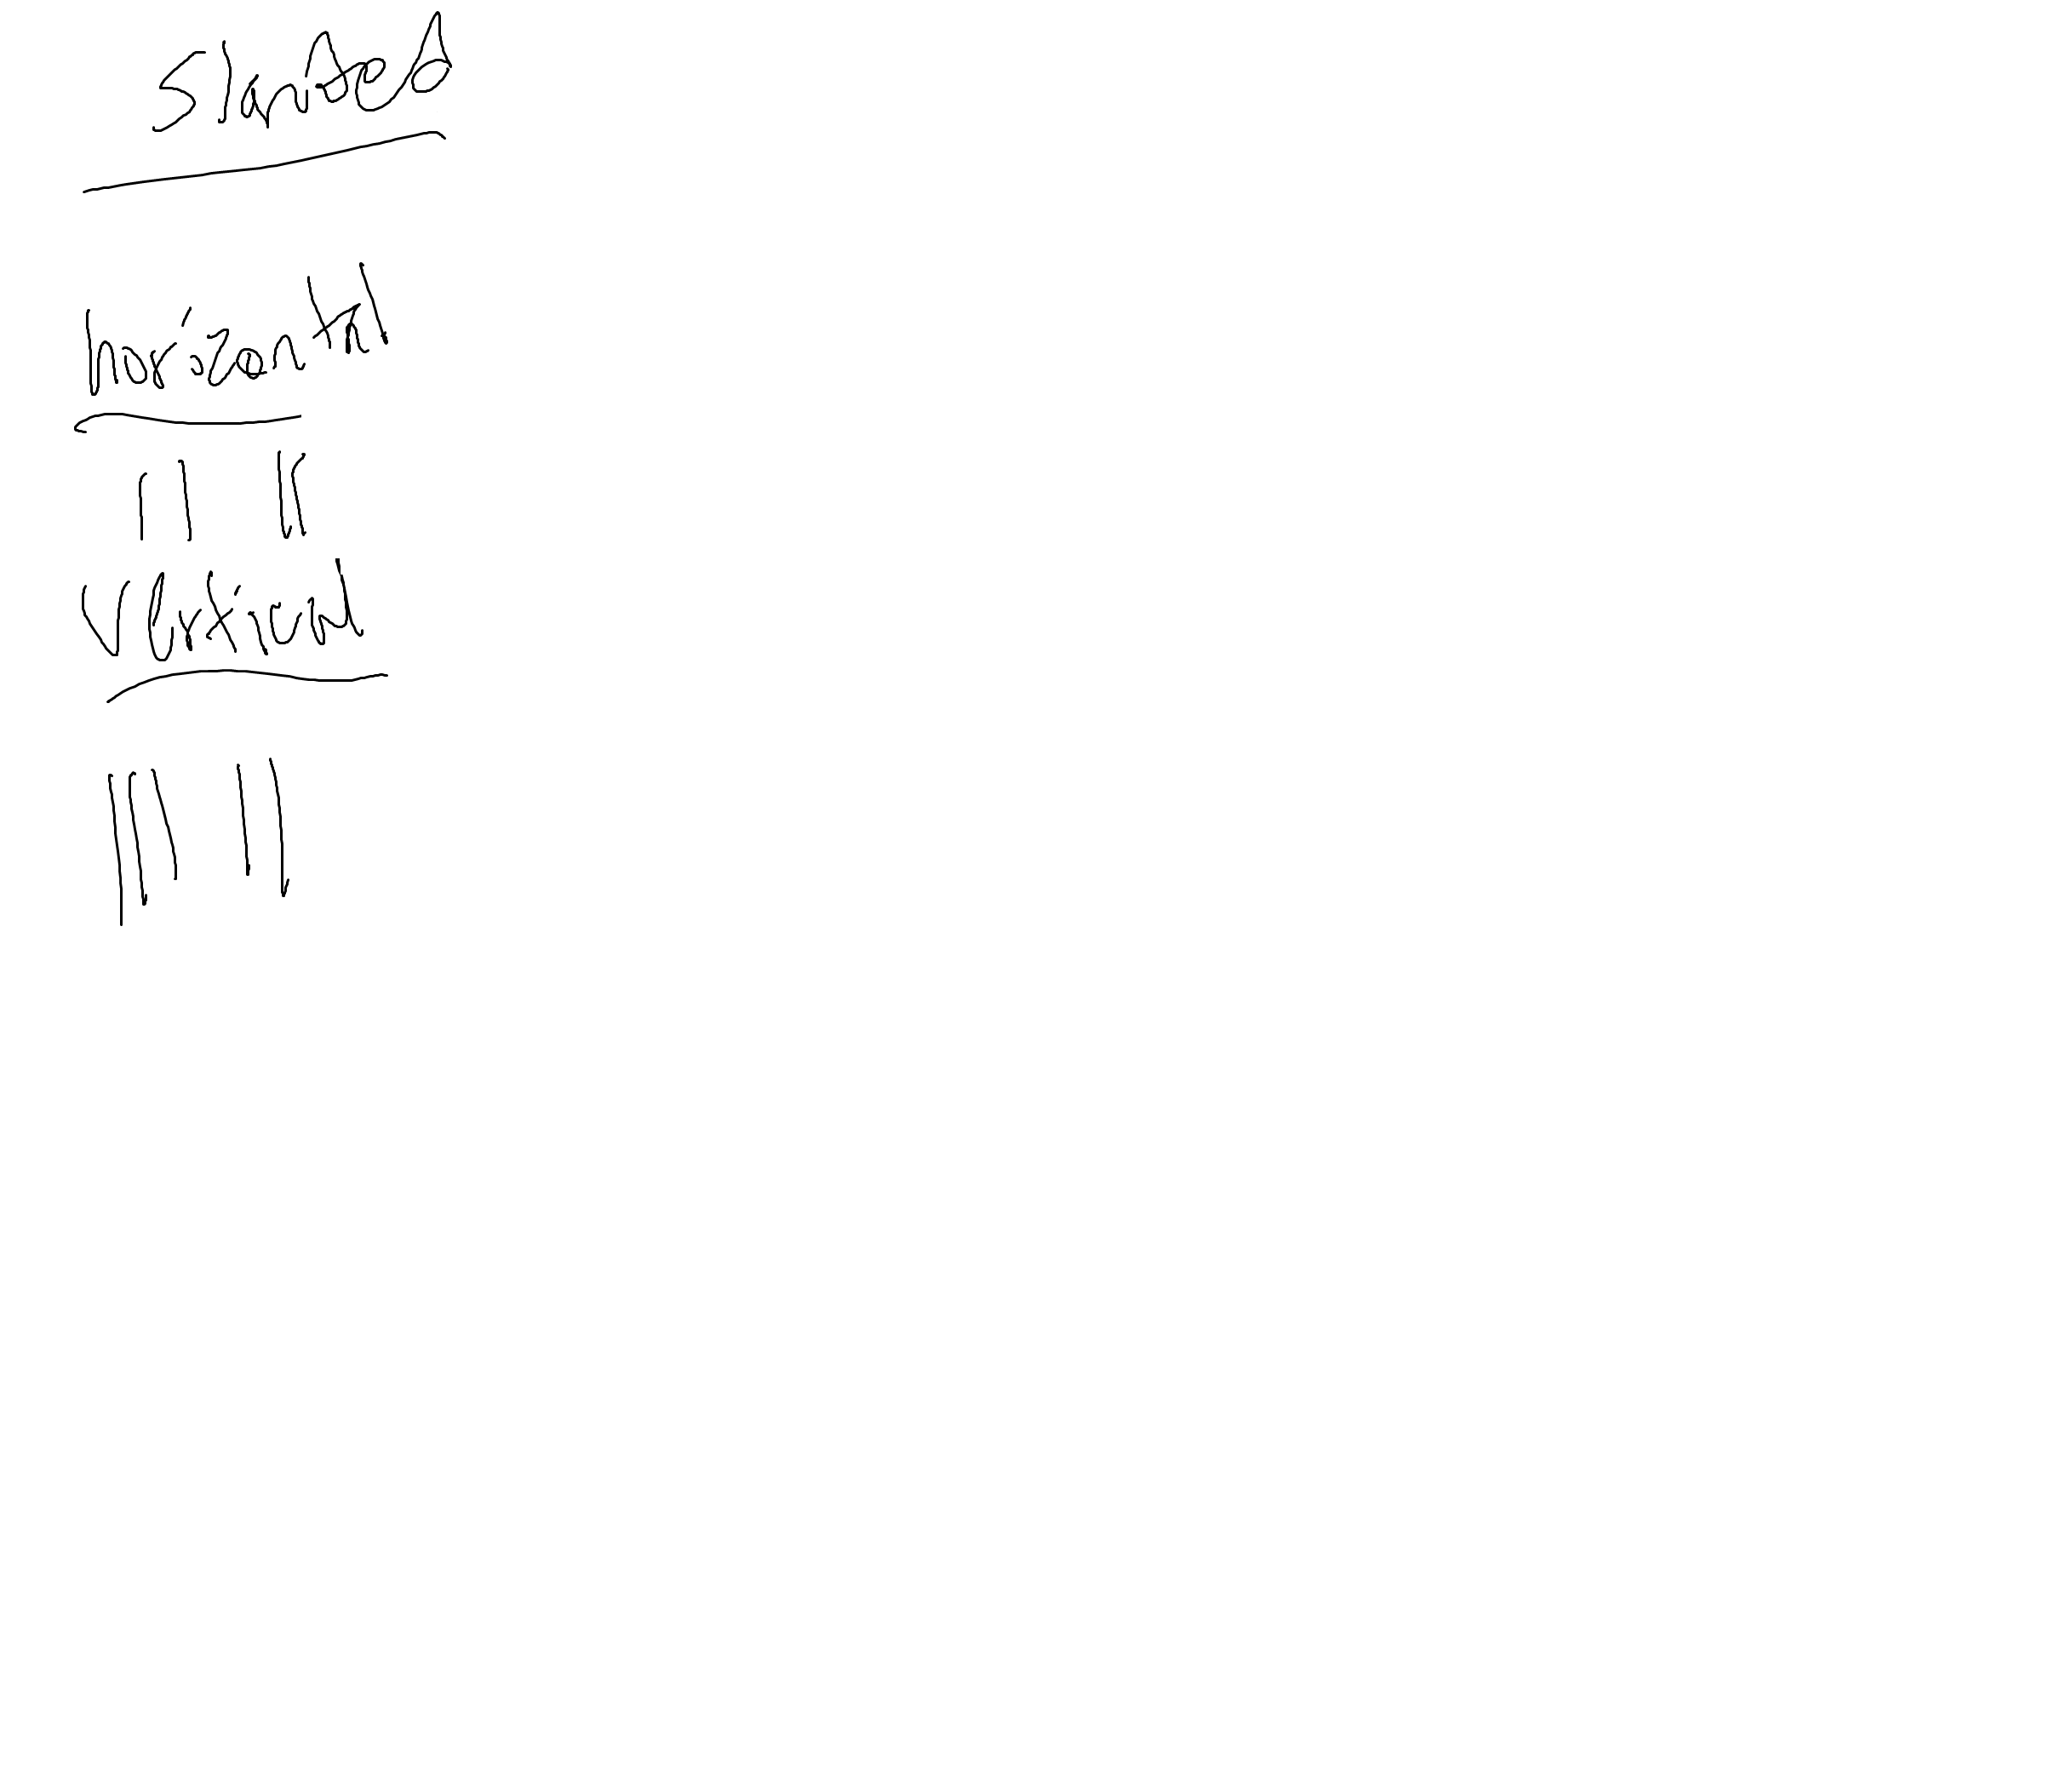 Slanted
horizontal
|| ||
Vertical
||| ||